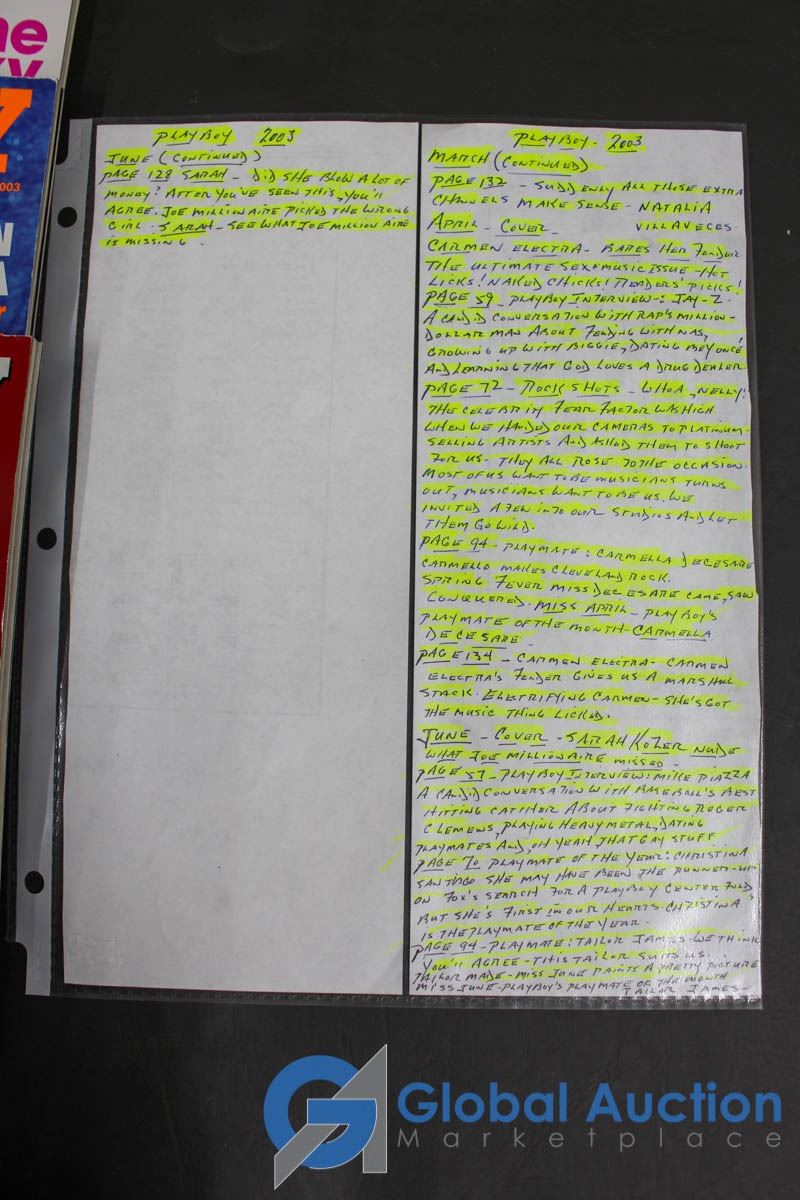 ne
xy
Z
003
N
A
r
PLAYBOY 2003
JUNE (CONTINUED)
PAGE 128 SARAH - DID SHE BLOW A LOT OF
MONEY? AFTER YOU'VE SEEN THIS, YOU'LL
AGREE. JOE MILLIONAIRE PICKED THE WRONG
GIRL. SARAH - SEE WHAT JOE MILLION AIRE
IS MISSING.
PLAYBOY - 2003
MARCH (CONTINUED)
PAGE 132 - SUDDENLY ALL THOSE EXTRA
CHANNELS MAKE SENSE - NATALIA
VILLAVECES
APRIL - COVER
CARMEN ELECTRA - BARES HER FENDER
THE ULTIMATE SEX & MUSIC ISSUE - HOT
LICKS! NAKED CHICKS! READERS' PICKS!
PAGE 59 - PLAYBOY INTERVIEW: JAY-Z -
A CANDID CONVERSATION WITH RAP'S MILLION-
DOLLAR MAN ABOUT FEUDING WITH NAS,
GROWING UP WITH BIGGIE, DATING BEYONCÉ
AND LEARNING THAT GOD LOVES A DRUG DEALER
PAGE 72 - ROCK SHOTS - WHOA, NELLY!
THE CELEBRITY FEAR FACTOR WAS HIGH
WHEN WE HANDED OUR CAMERAS TO PLATINUM-
SELLING ARTISTS AND ASKED THEM TO SHOOT
FOR US. THEY ALL ROSE TO THE OCCASION.
MOST OF US WANT TO BE MUSICIANS TURNS
OUT, MUSICIANS WANT TO BE US. WE
INVITED A FEW INTO OUR STUDIOS AND LET
THEM GO WILD.
PAGE 94 - PLAYMATE: CARMELLA DECESARE
CARMELLO MAKES CLEVELAND ROCK.
SPRING FEVER MISS DECESARE CAME, SAW
CONQUERED. MISS APRIL - PLAYBOY'S
PLAYMATE OF THE MONTH - CARMELLA
DECESARE
PAGE 134 - CARMEN ELECTRA - CARMEN
ELECTRA'S FENDER GIVES US A MARSHALL
STACK. ELECTRIFYING CARMEN - SHE'S GOT
THE MUSIC THING LICKED.
JUNE - COVER - SARAH KOZER NUDE
WHAT JOE MILLIONAIRE MISSED -
PAGE 57 - PLAYBOY INTERVIEW: MIKE PIAZZA
A CANDID CONVERSATION WITH BASEBALL'S BEST
HITTING CATCHER ABOUT FIGHTING ROGER
CLEMENS, PLAYING HEAVY METAL, DATING
PLAYMATES AND, OH YEAH THAT GAY STUFF
PAGE 70 PLAYMATE OF THE YEAR: CHRISTINA
SANTIAGO SHE MAY HAVE BEEN THE RUNNER-UP
ON FOX'S SEARCH FOR A PLAYBOY CENTERFOLD
BUT SHE'S FIRST IN OUR HEARTS. CHRISTINA
IS THE PLAYMATE OF THE YEAR.
PAGE 94 - PLAYMATE: TAILOR JAMES - WE THINK
YOU'LL AGREE - THIS TAILOR SUITS US.
TAILOR MADE - MISS JUNE PAINTS A PRETTY PICTURE
MISS JUNE - PLAYBOY'S PLAYMATE OF THE MONTH
TAILOR JAMES -
GA Global Auction
Marketplace